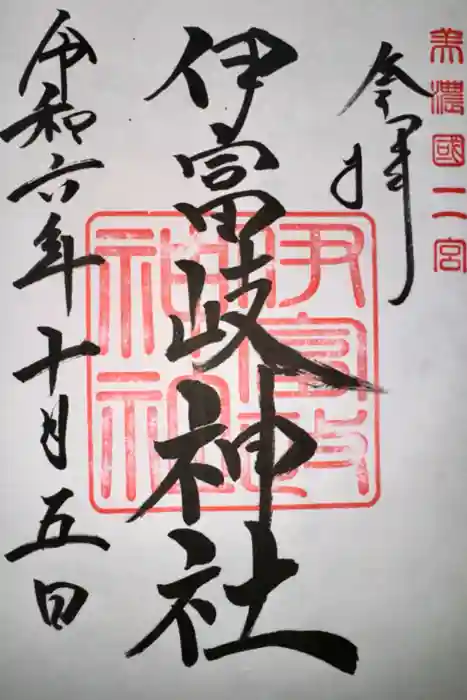 美濃國二宮
参拝
伊富岐神社
伊富岐
神社
令和六年十月五日